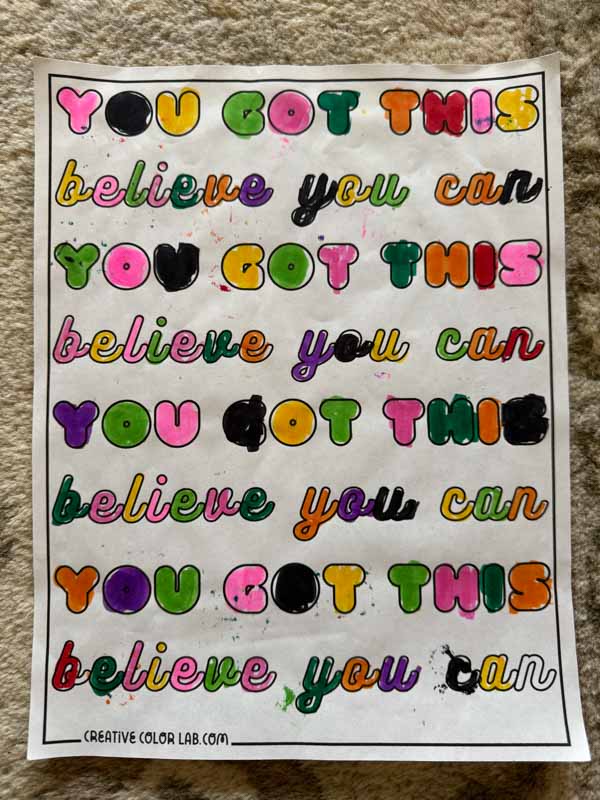 YOU GOT THIS
believe you can
YOU GOT THIS
believe you can
YOU GOT THIS
believe you can
YOU GOT THIS
believe you can
CREATIVE COLOR LAB.COM